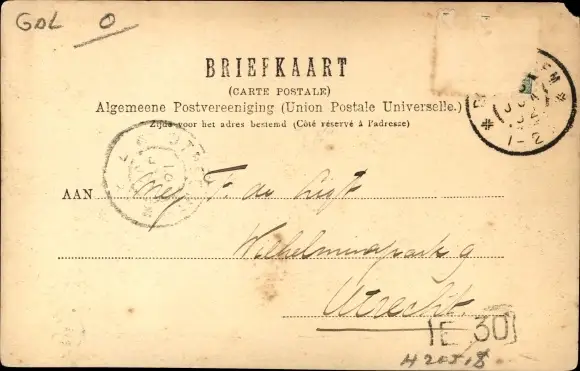 GDL O
BRIEFKAART
(CARTE POSTALE)
Algemeene Postvereeniging (Union Postale Universelle.)
Zijde voor het adres bestemd (Côté réservé à l'adresse)
AAN Mej F. de Ligt
Wilhelminapark 9
Utrecht.
E 30
H 20518